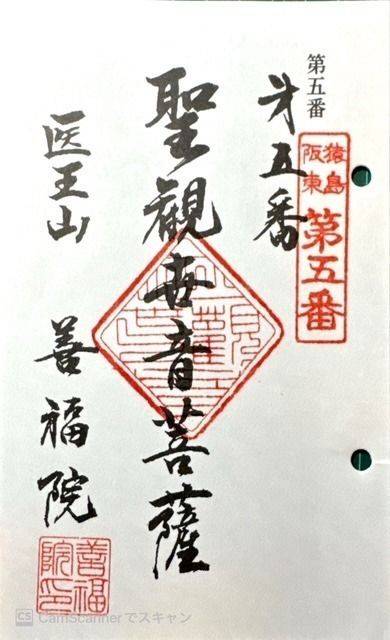 第五番
猿島
阪東
第五番
第五番
聖観世音菩薩
医王山
善福院
善福
院印
CS CamScannerでスキャン